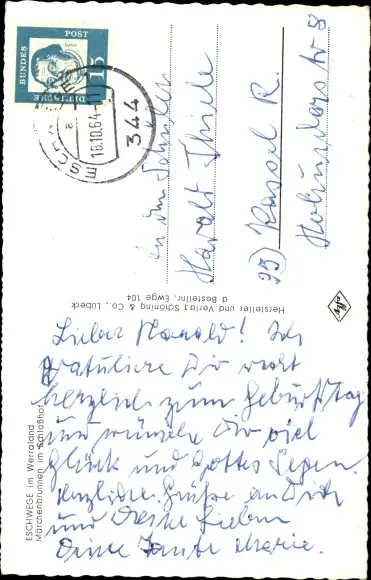 DEUTSCHE
BUNDES
POST
15
Luther
ESCHWEGE
18.10.64-11
a
344
An den Schüler
Harald Thiele
35) Kassel R.
8
Hersteller und Verlag Schöning & Co., Lübeck
Bestellnr. Ewge 104
Lieber Harald! Ich
gratuliere Dir recht
herzlich zum Geburtstag
und wünsche Dir viel
Glück und Gottes Segen.
Herzliche Grüße an Dich
und Deine Lieben
Deine Tante Marie.
ESCHWEGE im Werraland
Märchenbrunnen im Schloßhof